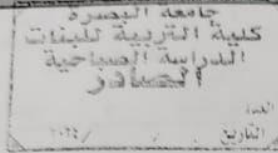 جامعة البصرة
كلية التربية للبنات
الدراسة الصباحية
الصادر
العدد
التاريخ / / ٢٠٢٤